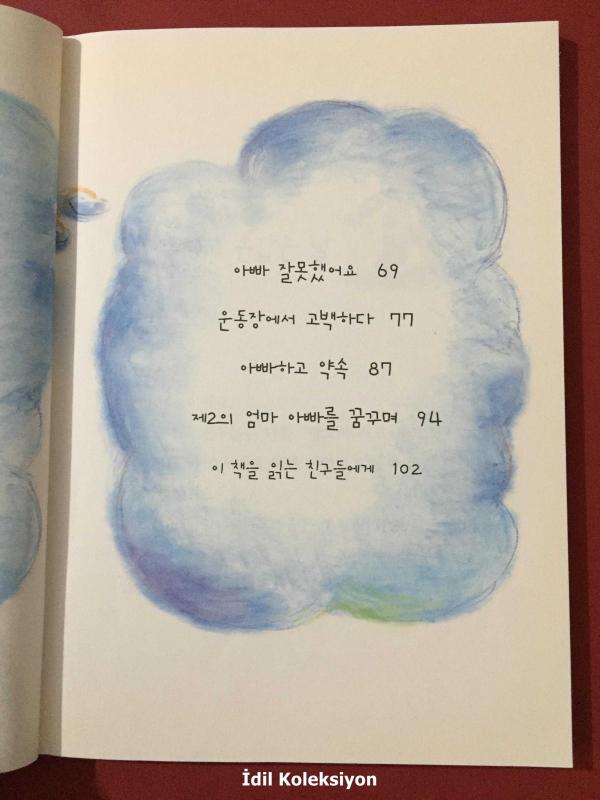 아빠 잘못했어요 69
운동장에서 고백하다 77
아빠하고 약속 87
제2의 엄마 아빠를 꿈꾸며 94
이 책을 읽는 친구들에게 102
İdil Koleksiyon